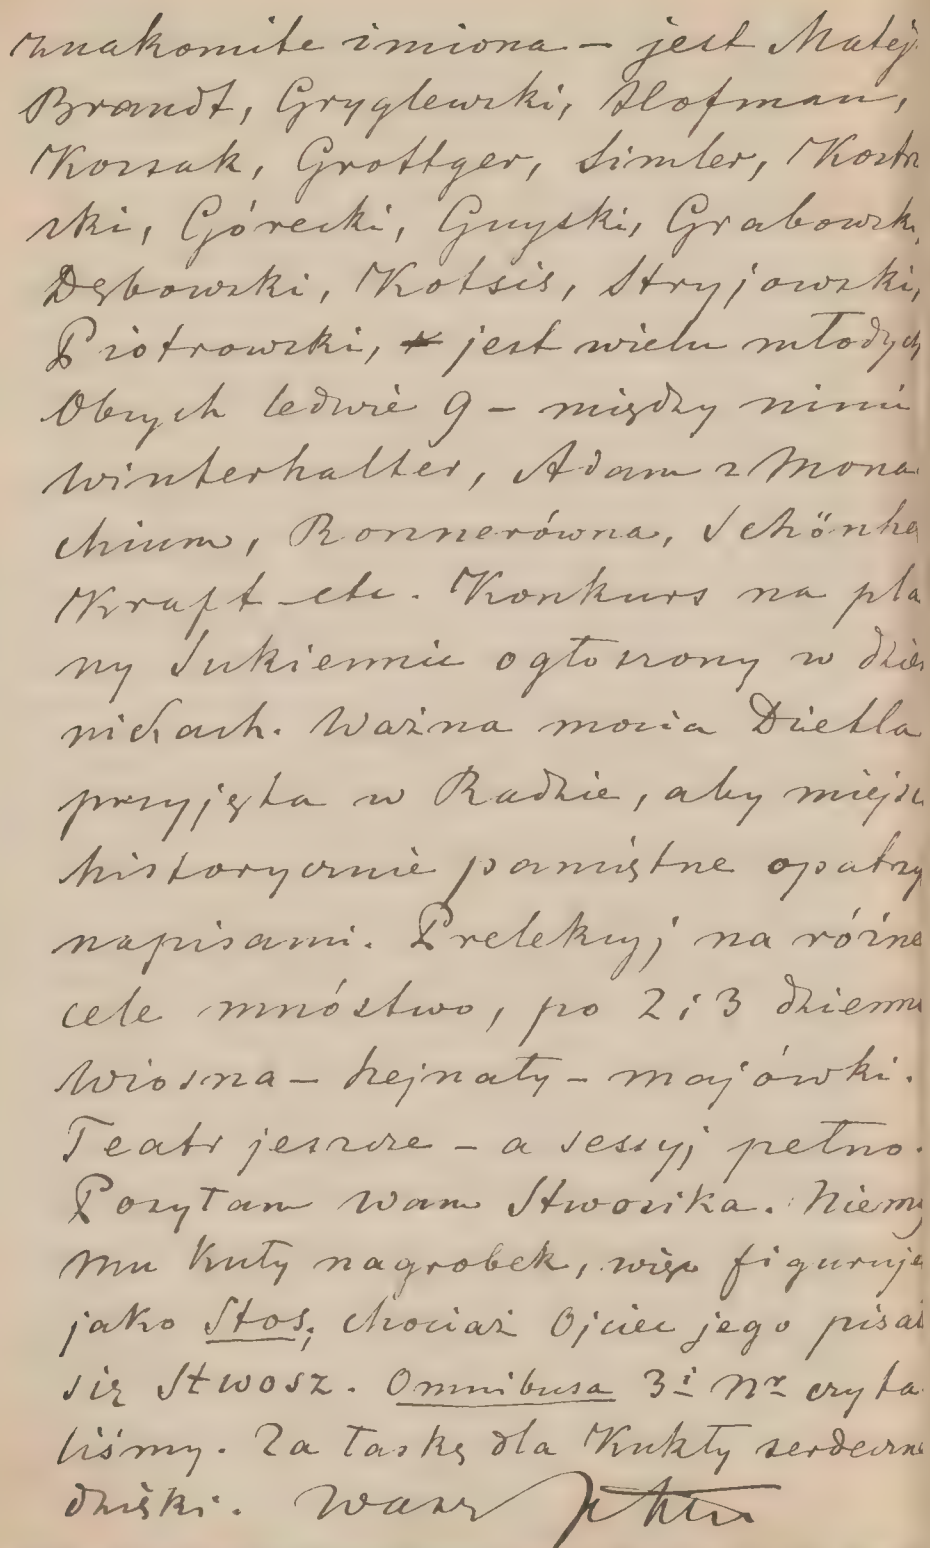 znakomite imiona – jest Matej
Brandt, Gryglewski, Hofman,
Kossak, Grottger, Simler, Kostrz
ski, Górecki, Guyski, Grabowski,
Dębowski, Kotsis, Stryjowski,
Piotrowski, jest wielu młodych
Obcych ledwie 9 – między nimi
Winterhalter, Adam z Mona
chium, Ronnerówna, Schönhe
Kraft etc. Konkurs na pla
ny Sukiennic ogłoszony w dzien
nikach. Ważna mocia Dietla
przyjęta w Radzie, aby miejsc
historycznie pamiętne opatrzy
napisami. Prelekcyj na różne
cele mnóstwo, po 2 i 3 dzienni
Wiosna – hejnały – majówki.
Teatr jeszcze – a sessyj pełno.
Posyłam Wam Stwosika. Niemcy
mu kuły nagrobek, więc figuruje
jako Stos, chociaż Ojciec jego pisał
się Stwosz. Omnibusa 3i Nr czyta
liśmy. Za łaskę dla Kukły serdeczne
dzięki. Wasz